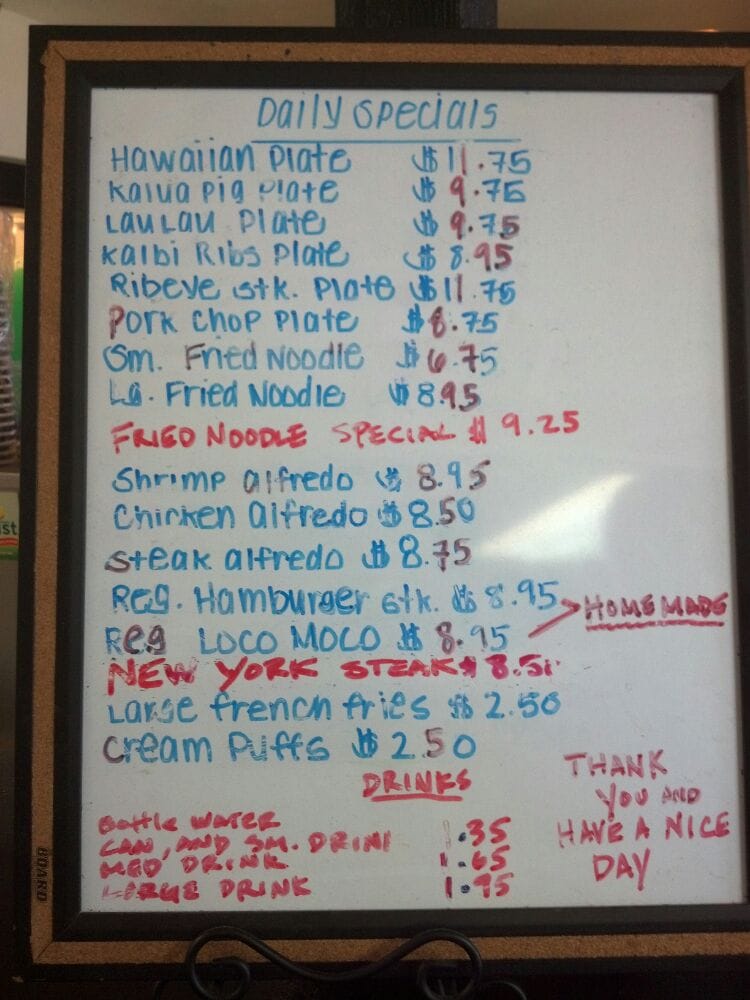 Daily Specials
Hawaiian Plate $11.75
Kalua Pig Plate $9.75
LauLau Plate $9.75
Kalbi Ribs Plate $8.95
Ribeye stk. Plate $11.75
Pork Chop Plate $8.75
Sm. Fried Noodle $6.75
Lg. Fried Noodle $8.95
FRIED NOODLE SPECIAL $9.25
Shrimp alfredo $8.95
Chicken alfredo $8.50
Steak alfredo $8.75
Reg. Hamburger stk. $8.95
HOMEMADE
Reg LOCO MOCO $8.95
NEW YORK STEAK $8.5
Large french fries $2.50
Cream Puffs $2.50
DRINKS
Bottle WATER
CAN, AND SM. DRIN 1.35
MED DRINK 1.65
LARGE DRINK 1.95
THANK
YOU AND
HAVE A NICE
DAY
BOARD